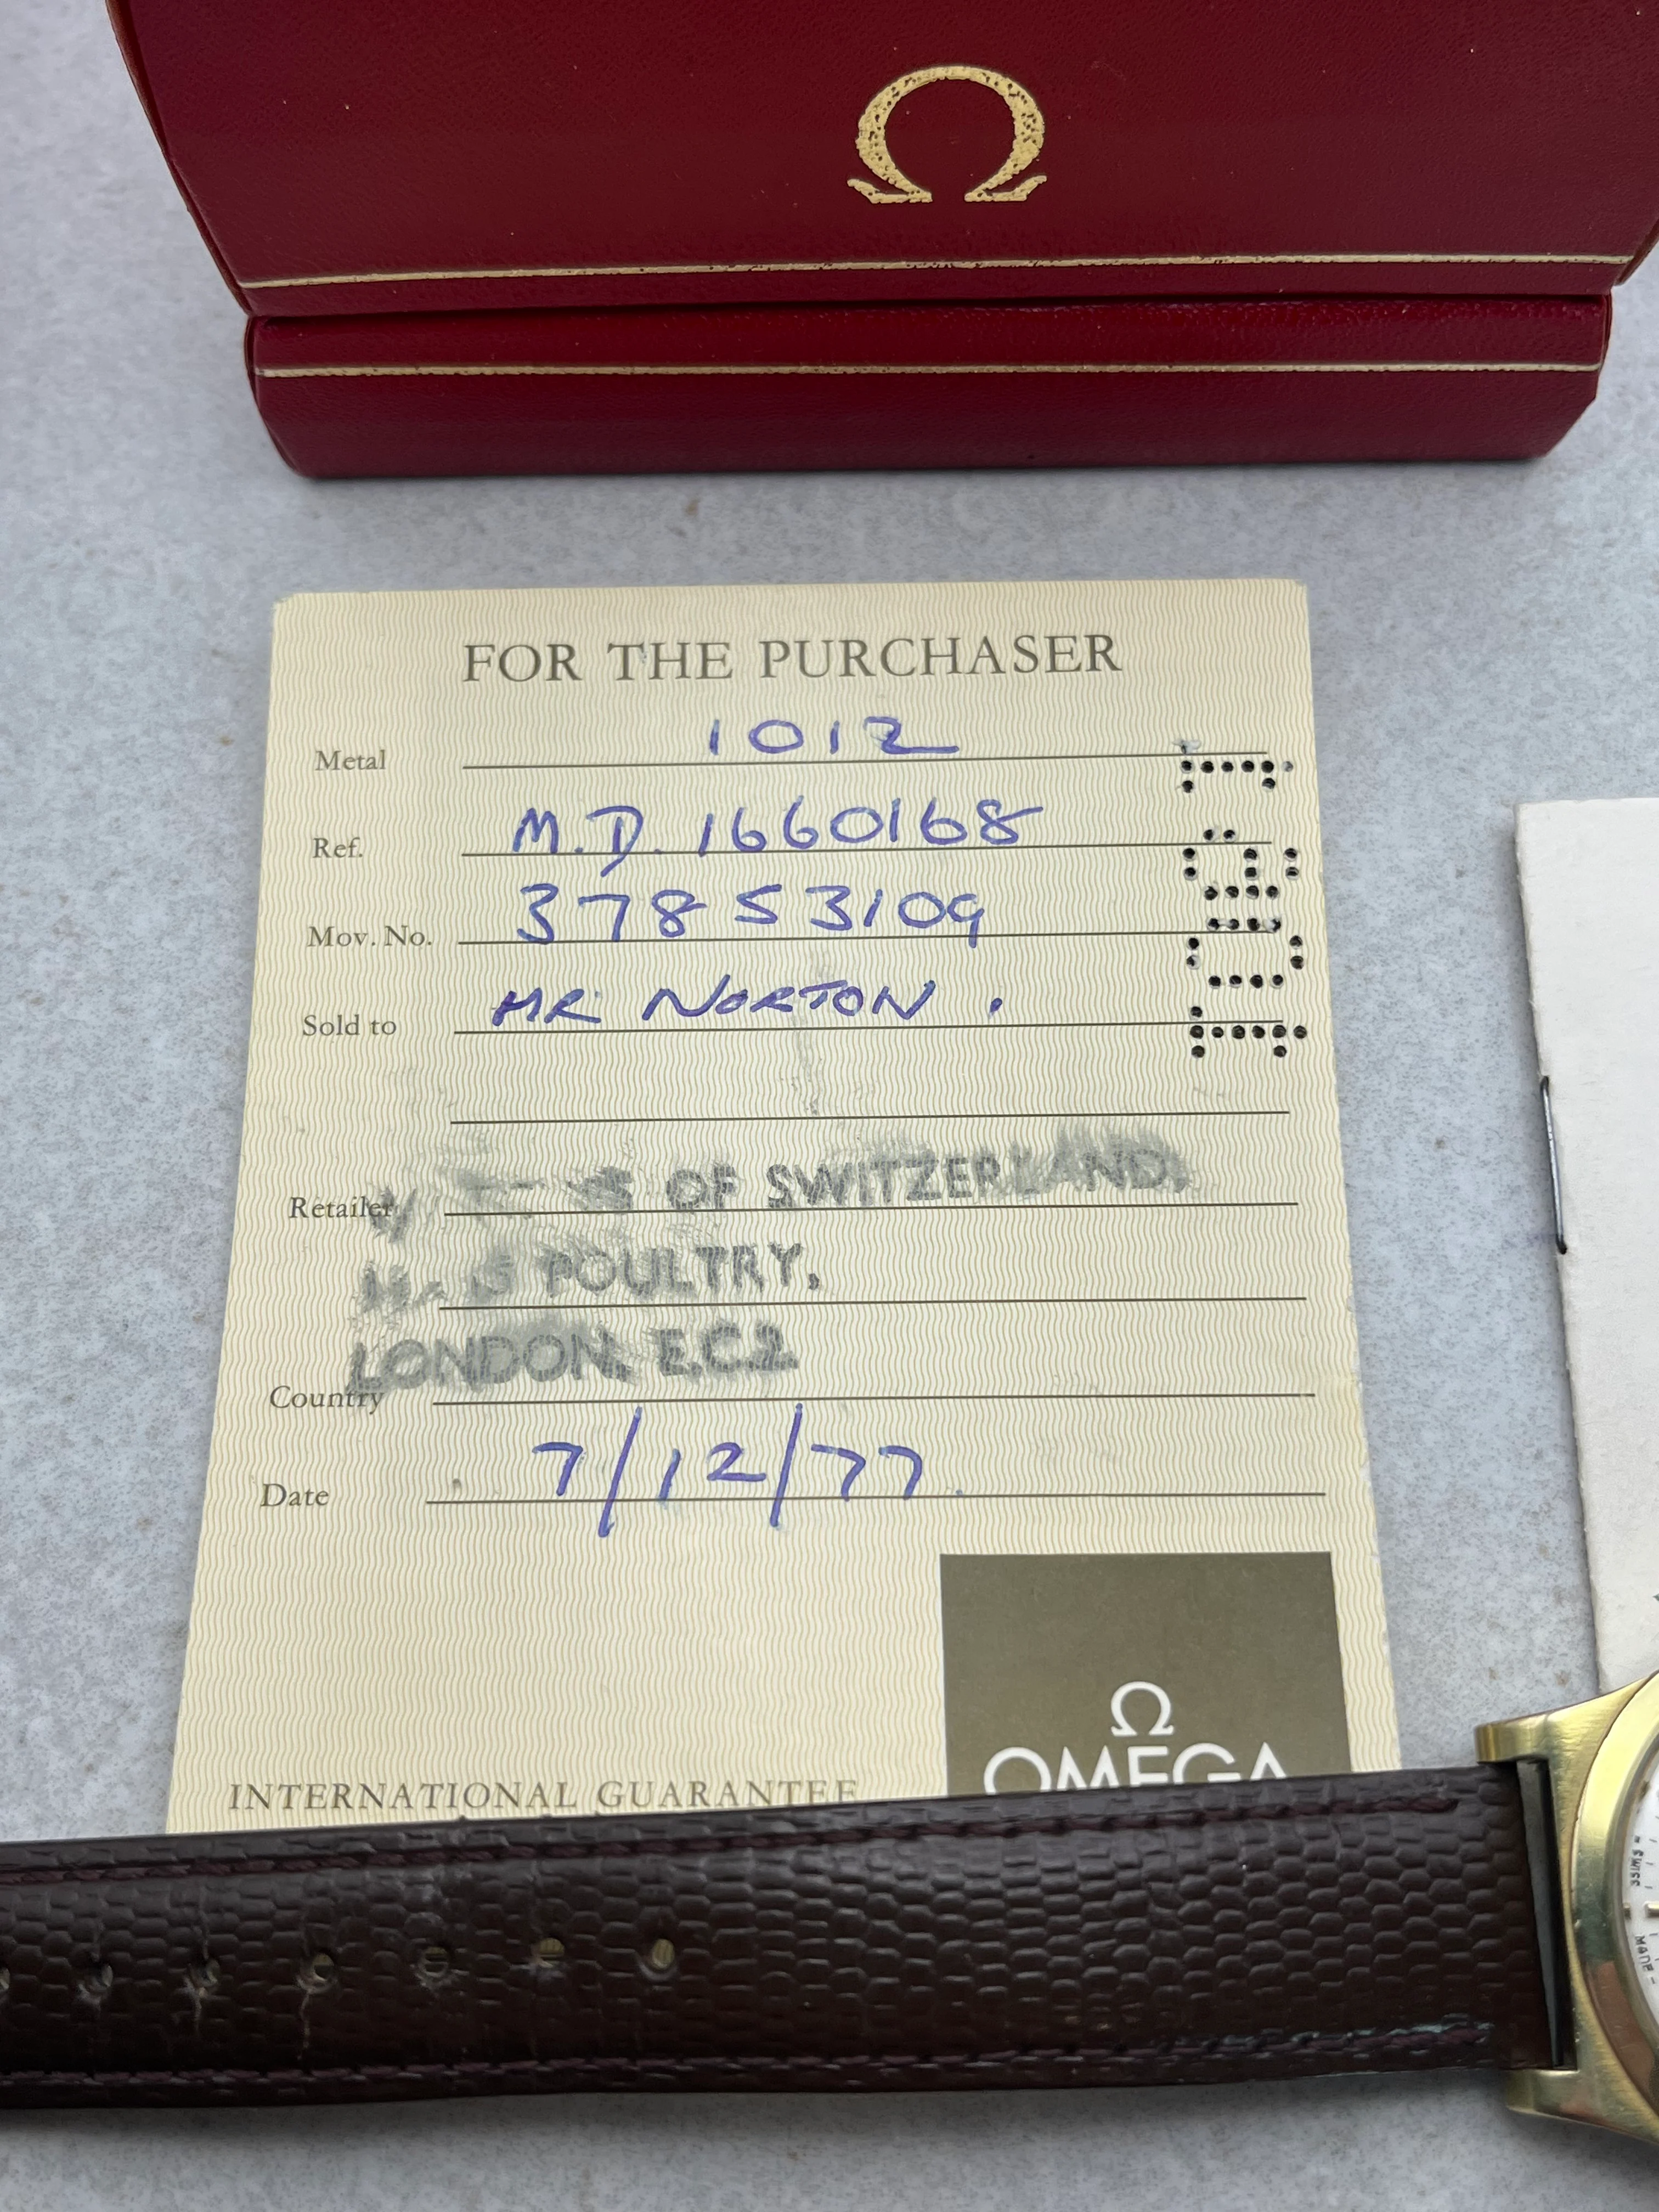 Ω
FOR THE PURCHASER
Metal 1012
Ref. M.D. 1660168
Mov. No. 37853109
Sold to MR NORTON.
Retailer OF SWITZERLAND,
POULTRY,
LONDON. E.C.2
Country
Date 7/12/77.
Ω
OMEGA
INTERNATIONAL GUARANTEE
SWISS
MADE